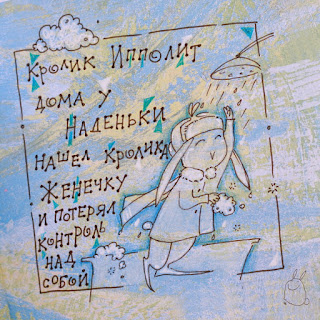 Кролик Ипполит
дома у
Наденьки
нашел кролика
Женечку
и потерял
контроль
над
собой